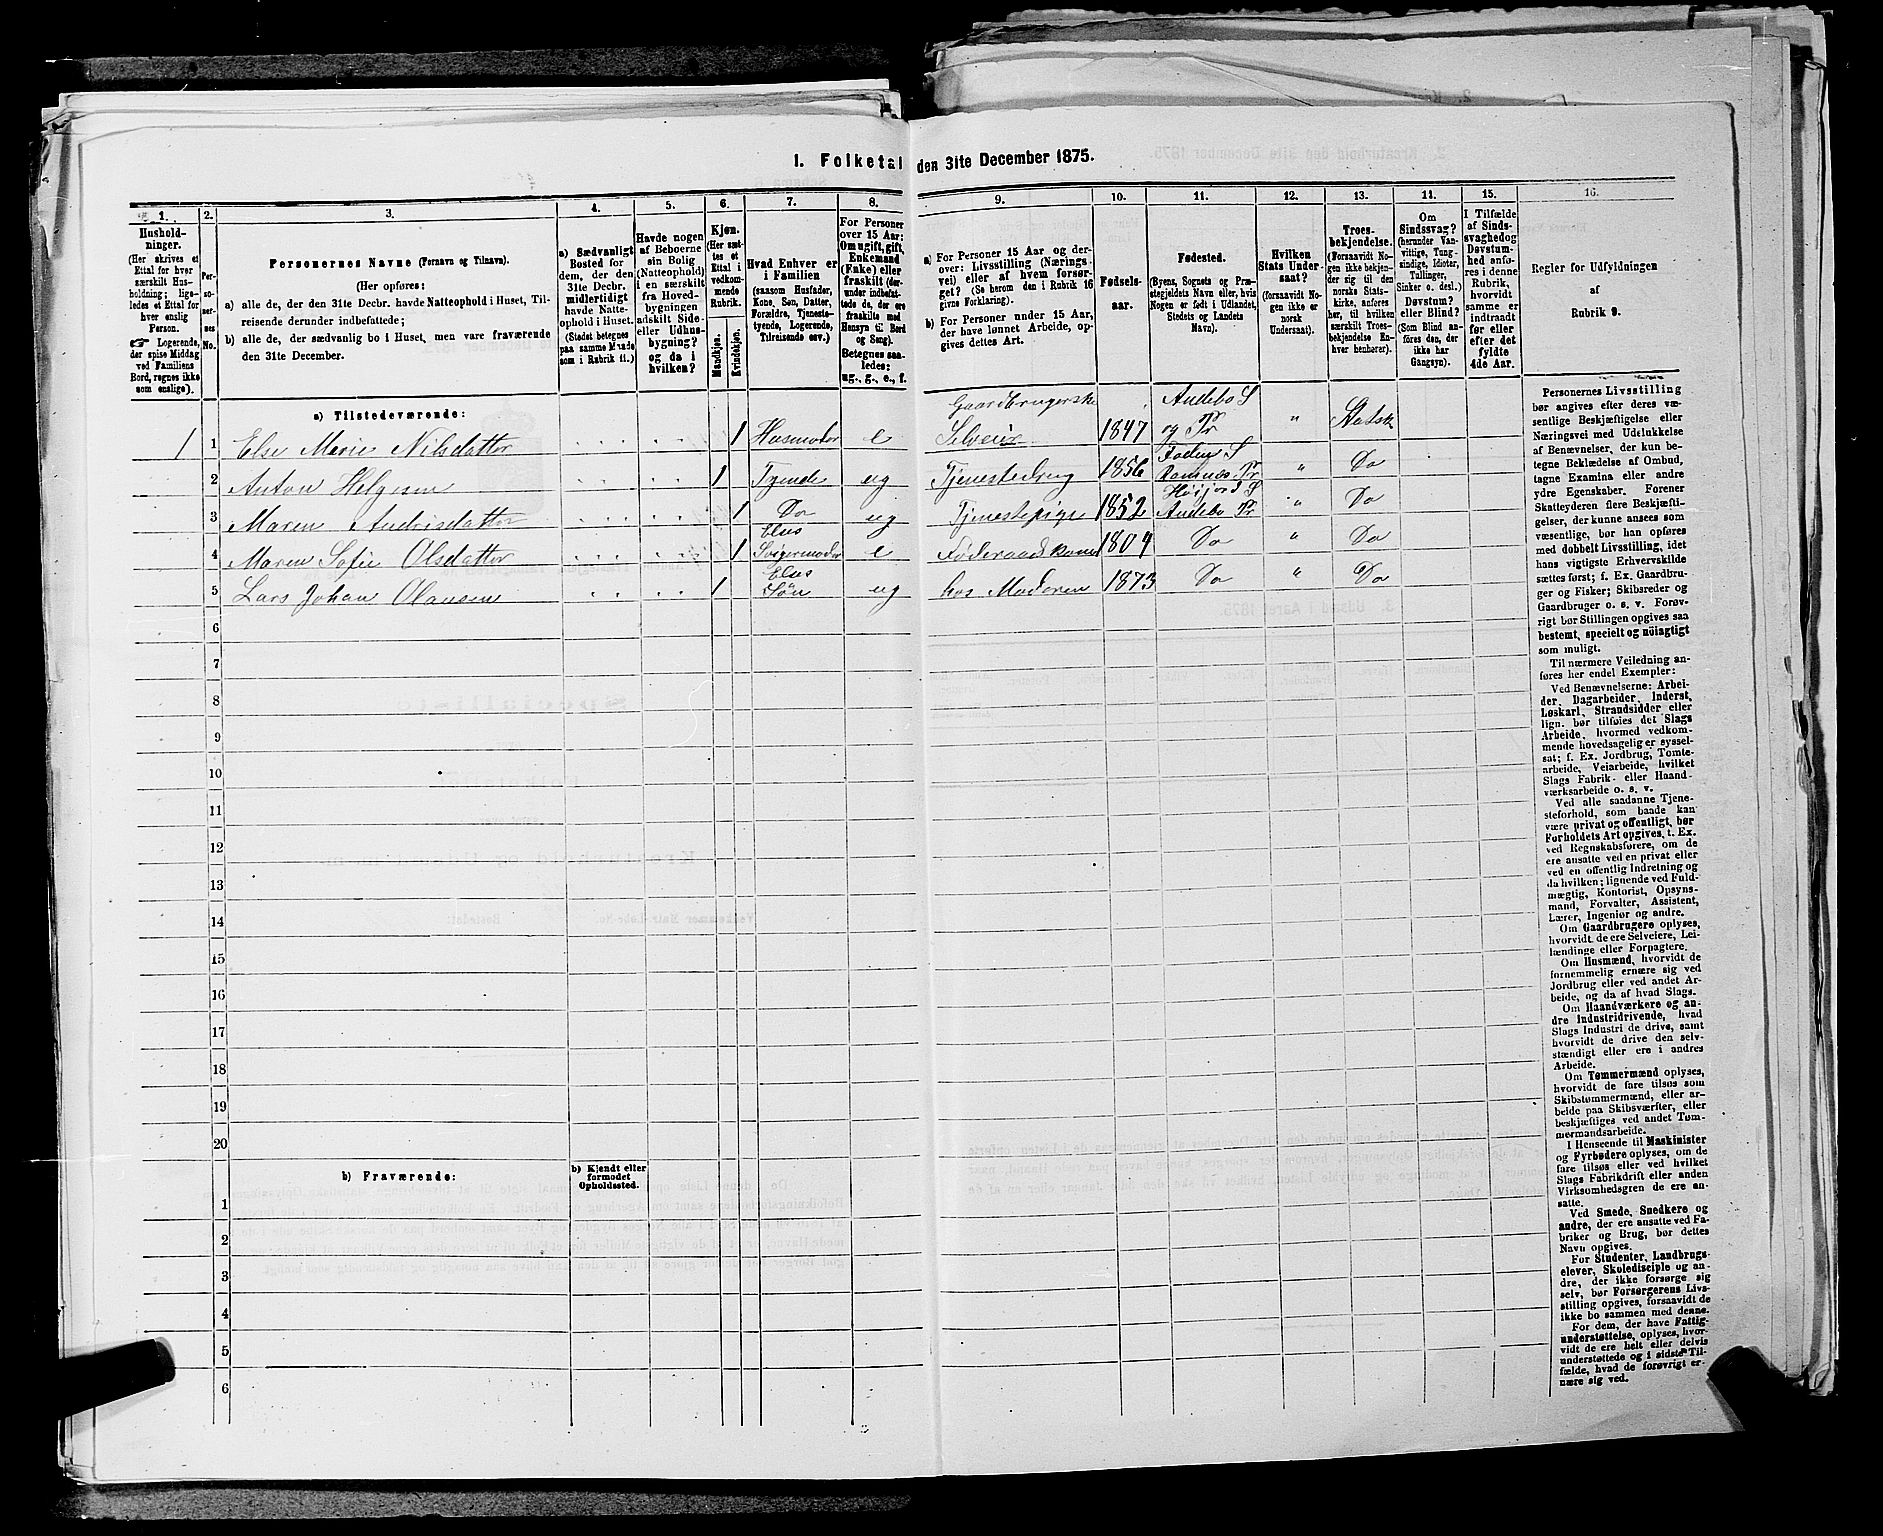 1. Folketal den 31te December 1875.
1.
Hushold-
ninger.
(Her skrives et
Ettal for hver
særskilt Hus-
holdning; lige-
ledes et Ettal for
hver enslig
Person.
☞ Logerende,
der spise Middag
ved Familiens
Bord, regnes ikke
som enslige).
2.
Per-
so-
ner-
nes
No.
3.
Personernes Navne (Fornavn og Tilnavn).
(Her opføres:
a) alle de, der den 31te Decbr. havde Natteophold i Huset, Til-
reisende derunder indbefattede;
b) alle de, der sædvanlig bo i Huset, men vare fraværende
den 31te December.
4.
a) Sædvanligt
Bosted for
dem, der den
31te Decbr.
midlertidigt
havde Natte-
ophold i Huset.
(Stedet betegnes
paa samme Maade
som i Rubrik 11.)
5.
Havde nogen
af Beboerne
sin Bolig
(Natteophold)
i en særskilt
fra Hoved-
bygningen
adskilt Side-
eller Udhus-
bygning?
og da i
hvilken?
6.
Kjøn.
(Her sæt-
tes et
Ettal i
vedkom-
mende
Rubrik.
Mandkjøn.
Kvindekjøn.
7.
Hvad Enhver er
i Familien
(saasom Husfader,
Kone, Søn, Datter,
Forældre, Tjeneste-
tyende, Logerende,
Tilreisende osv.)
8.
For Personer
over 15 Aar:
Om ugift, gift,
Enkemand
(Enke) eller
fraskilt (der-
under indbefat-
tede de, der ere
fraskilte med
Hensyn til Bord
og Seng).
Betegnes saa-
ledes:
ug., g., e., f.
9.
a) For Personer 15 Aar og der-
over: Livsstilling (Nærings-
vei) eller af hvem forsør-
get? (Se herom den i Rubrik 16
givne Forklaring).
b) For Personer under 15 Aar,
der have lønnet Arbeide, op-
gives dettes Art.
10.
Fødsels-
aar.
11.
Fødested.
(Byens, Sognets og Præ-
stegjeldets Navn eller, hvis
Nogen er født i Udlandet,
Stedets og Landets
Navn).
12.
Hvilken
Stats Under-
saat?
(forsaavidt No-
gen ikke er
norsk
Undersaat).
13.
Troes-
bekjendelse.
(Forsaavidt No-
gen ikke bekjen-
der sig til den
norske Stats-
kirke, anføres
her, til hvilken
særskilt Troes-
bekjendelse En-
hver henhører).
14.
Om
Sindssvag?
(herunder Van-
vittige, Tung-
sindige, Idioter,
Tullinger,
Sinker o. desl.)
Døvstum?
eller Blind?
(Som Blind an-
føres den, der
ikke har
Gangsyn).
15.
I Tilfælde
af Sinds-
svaghed og
Døvstum-
hed anfø-
res i denne
Rubrik,
hvorvidt
samme er
indtraadt
før eller
efter det
fyldte
4de Aar.
16.
Regler for Udfyldningen
af
Rubrik 9.
a) Tilstedeværende:
1 1 Else Marie Nilsdatter 1 Husmoder e Gaardbrugerske Selveier 1847 Andebo S og Pr " Statsk
2 Anton Helgesen 1 Tyende ug Tjenestedreng 1856 Foden S Ramnes Pr " Do
3 Maren Andrisdatter 1 Do ug Tjenestepige 1852 Høijord S Andebo Pr " Do
4 Maren Sofie Olsdatter 1 Elses Svigermoder e Føderaadskone 1804 Do " Do
5 Lars Johan Olausen 1 Elses Søn ug hos Moderen 1873 Do " Do
6
7
8
9
10
11
12
13
14
15
16
17
18
19
20
b) Fraværende:
b) Kjendt eller
formodet
Opholdssted.
1
2
3
4
5
6
Personernes Livsstilling
bør angives efter deres væ-
sentlige Beskjæftigelse eller
Næringsvei med Udelukkelse
af Benævnelser, der kun be-
tegne Beklædelse af Ombud,
tagne Examina eller andre
ydre Egenskaber. Forener
Skatteyderen flere Beskjæfti-
gelser, der kunne ansees som
væsentlige, bør han opføres
med dobbelt Livsstilling, idet
hans vigtigste Erhvervskilde
sættes først; f. Ex. Gaardbru-
ger og Fisker; Skibsreder og
Gaardbruger o. s. v. Forøv-
rigt bør Stillingen opgives saa
bestemt, specielt og nøiagtigt
som muligt.
Til nærmere Veiledning an-
føres her endel Exempler:
Ved Benævnelserne: Arbei-
der, Dagarbeider, Inderst,
Løskarl, Strandsidder eller
lign. bør tilføies det Slags
Arbeide, hvormed vedkom-
mende hovedsagelig er syssel-
sat; f. Ex. Jordbrug, Tomte-
arbeide, Veiarbeide, hvilket
Slags Fabrik- eller Haand-
værksarbeide o. s. v.
Ved alle saadanne Tjene-
steforhold, som baade kan
være privat og offentligt, bør
Forholdets Art opgives, t. Ex.
ved Regnskabsførere, om de
ere ansatte ved en privat eller
ved en offentlig Indretning og
da hvilken; lignende ved Fuld-
mægtig, Kontorist, Opsyns-
mand, Forvalter, Assistent,
Lærer, Ingeniør og andre.
Om Gaardbrugere oplyses,
hvorvidt de ere Selveiere, Lei-
lændinge eller Forpagtere.
Om Husmænd, hvorvidt de
fornemmelig ernære sig ved
Jordbrug eller ved andet Ar-
beide, og da af hvad Slags.
Om Haandværkere og an-
dre Industridrivende, hvad
Slags Industri de drive, samt
hvorvidt de drive den selv-
stændigt eller ere i andres
Arbeide.
Om Tømmermænd oplyses,
hvorvidt de fare tilsøs som
Skibstømmermænd, eller ar-
beide paa Skibsværfter, eller
beskjæftiges ved andet Tøm-
mermandsarbeide.
I Henseende til Maskinister
og Fyrbødere oplyses, om de
fare tilsøs eller ved hvilket
Slags Fabrikdrift eller anden
Virksomhedsgren de ere an-
satte.
Ved Smede, Snedkere og
andre, der ere ansatte ved Fa-
briker og Brug, bør dettes
Navn opgives.
For Studenter, Landbrugs-
elever, Skoledisciple og an-
dre, der ikke forsørge sig
selv, bør Forsørgerens Livs-
stilling opgives, forsaavidt de
ikke bo sammen med denne.
For dem, der have Fattig-
understøttelse, oplyses, hvor-
vidt de ere helt eller delvis
understøttede og i sidste Til-
fælde, hvad de forøvrigt er-
nære sig ved.